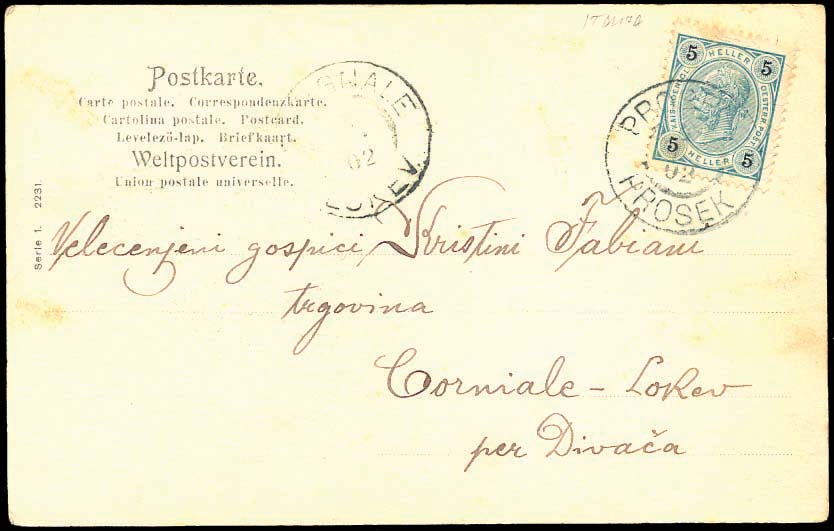 ITALIJA
Postkarte.
Carte postale. Correspondenzkarte.
Cartolina postale. Postcard.
Levelező-lap. Briefkaart.
Weltpostverein.
Union postale universelle.
Serie 1. 2231.
NALE
02
LOKEV
5 HELLER 5
KAIS. KOENIGL. OESTERR. POST
5 HELLER 5
PRO
02
PROSEK
Velecenjeni gospici Kristini Fabiani
trgovina
Corniale - Lokev
per Divača